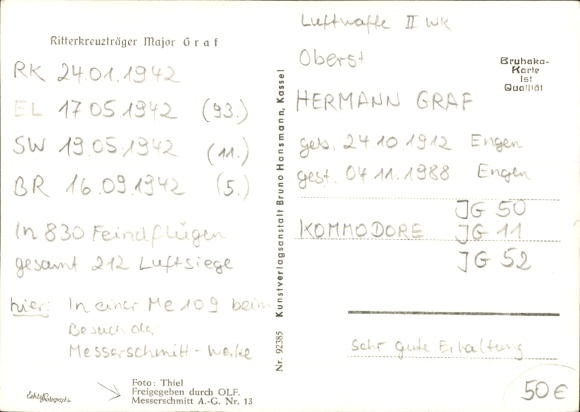 Ritterkreuzträger Major Graf
RK 24.01.1942
EL 17.05.1942 (93.)
SW 19.05.1942 (11.)
BR 16.09.1942 (5.)
In 830 Feindflügen
gesamt 212 Luftsiege
hier: In einer Me 109 beim
Besuch der
Messerschmitt-Werke
Foto: Thiel
Freigegeben durch OLF.
Messerschmitt A.-G. Nr. 13
Nr. 92385 Kunstverlagsanstalt Bruno Hansmann, Kassel
Luftwaffe II WK
Oberst
Bruhaka-
Karte
Ist
Qualität
HERMANN GRAF
geb. 24 10 1912 Engen
gest. 04 11.1988 Engen
JG 50
KOMMODORE JG 11
JG 52
sehr gute Erhaltung
50€